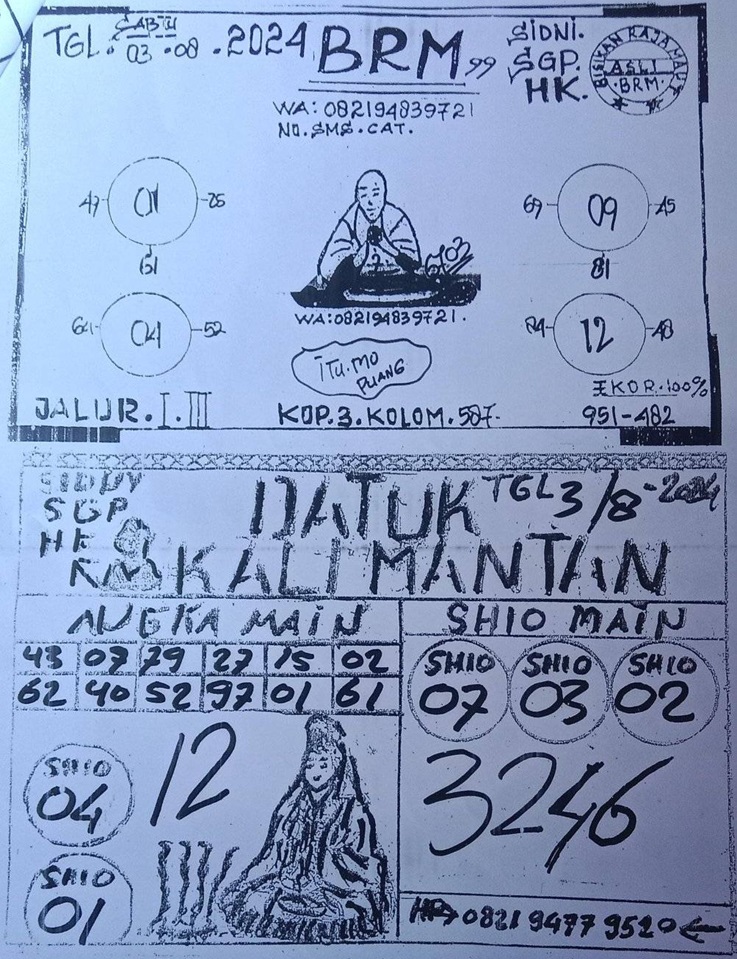 TGL. SABTU 03.08.2024
BRM 99
SIDNI.
SGP.
HK.
BISIKAN RAJA MAUT
ASLI
BRM.
WA: 082194839721
NO.SMS.CAT.
01
61
04
52
09
69
45
81
12
48
WA:082194839721.
ITU.MO
PUANG
JALUR.I.III
KOP.3.KOLOM.587.
EKOR.100%
951-482
SGP
DATUK
TGL 3/8-2024
KALIMANTAN
ANGKA MAIN
SHIO MAIN
43 07 79 27 15 02
62 40 52 97 01 61
SHIO 07
SHIO 03
SHIO 02
SHIO
04
12
3246
SHIO
01
HP→0821 9477 9520←